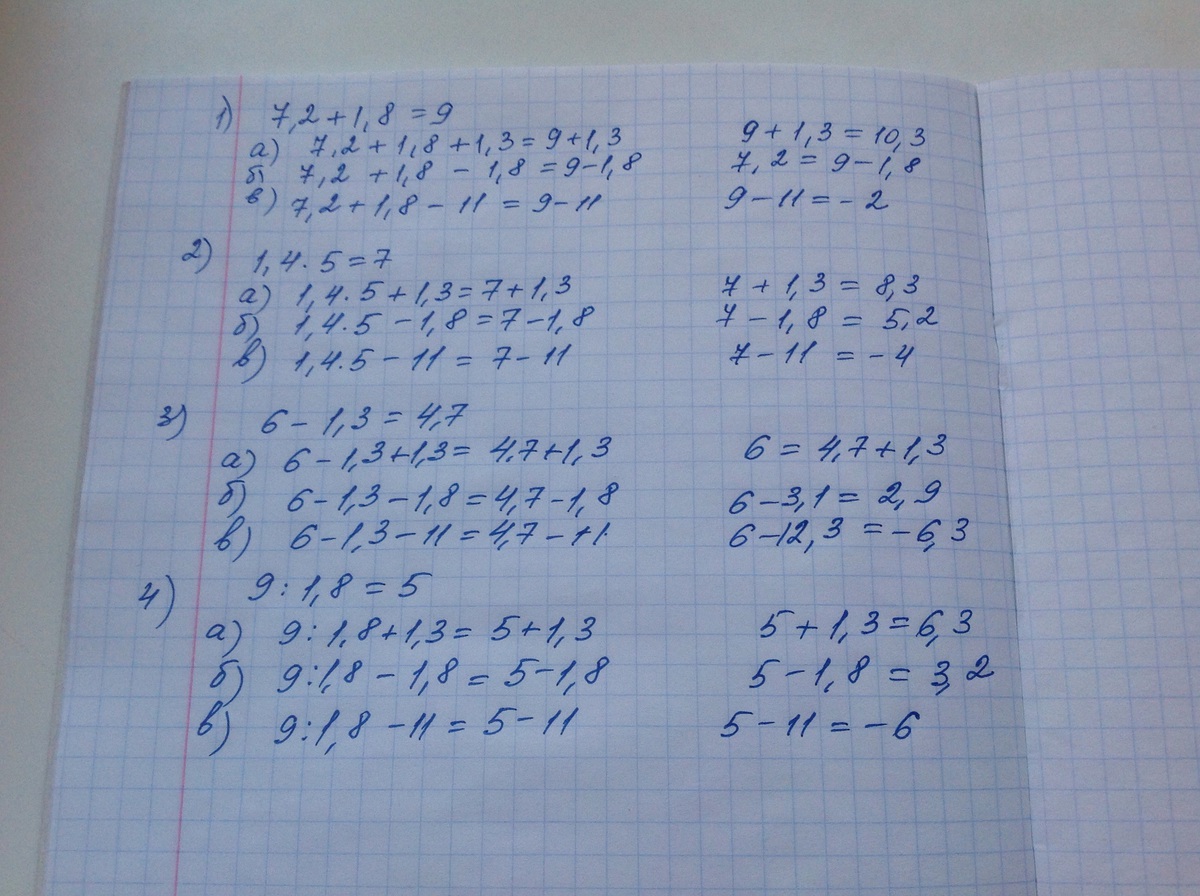 1) 7,2 + 1,8 = 9
а) 7,2 + 1,8 + 1,3 = 9 + 1,3 9 + 1,3 = 10,3
б) 7,2 + 1,8 - 1,8 = 9 - 1,8 7,2 = 9 - 1,8
в) 7,2 + 1,8 - 11 = 9 - 11 9 - 11 = - 2
2) 1,4 · 5 = 7
а) 1,4 · 5 + 1,3 = 7 + 1,3 7 + 1,3 = 8,3
б) 1,4 · 5 - 1,8 = 7 - 1,8 7 - 1,8 = 5,2
в) 1,4 · 5 - 11 = 7 - 11 7 - 11 = - 4
3) 6 - 1,3 = 4,7
а) 6 - 1,3 + 1,3 = 4,7 + 1,3 6 = 4,7 + 1,3
б) 6 - 1,3 - 1,8 = 4,7 - 1,8 6 - 3,1 = 2,9
в) 6 - 1,3 - 11 = 4,7 - 11. 6 - 12,3 = - 6,3
4) 9 : 1,8 = 5
а) 9 : 1,8 + 1,3 = 5 + 1,3 5 + 1,3 = 6,3
б) 9 : 1,8 - 1,8 = 5 - 1,8 5 - 1,8 = 3,2
в) 9 : 1,8 - 11 = 5 - 11 5 - 11 = - 6